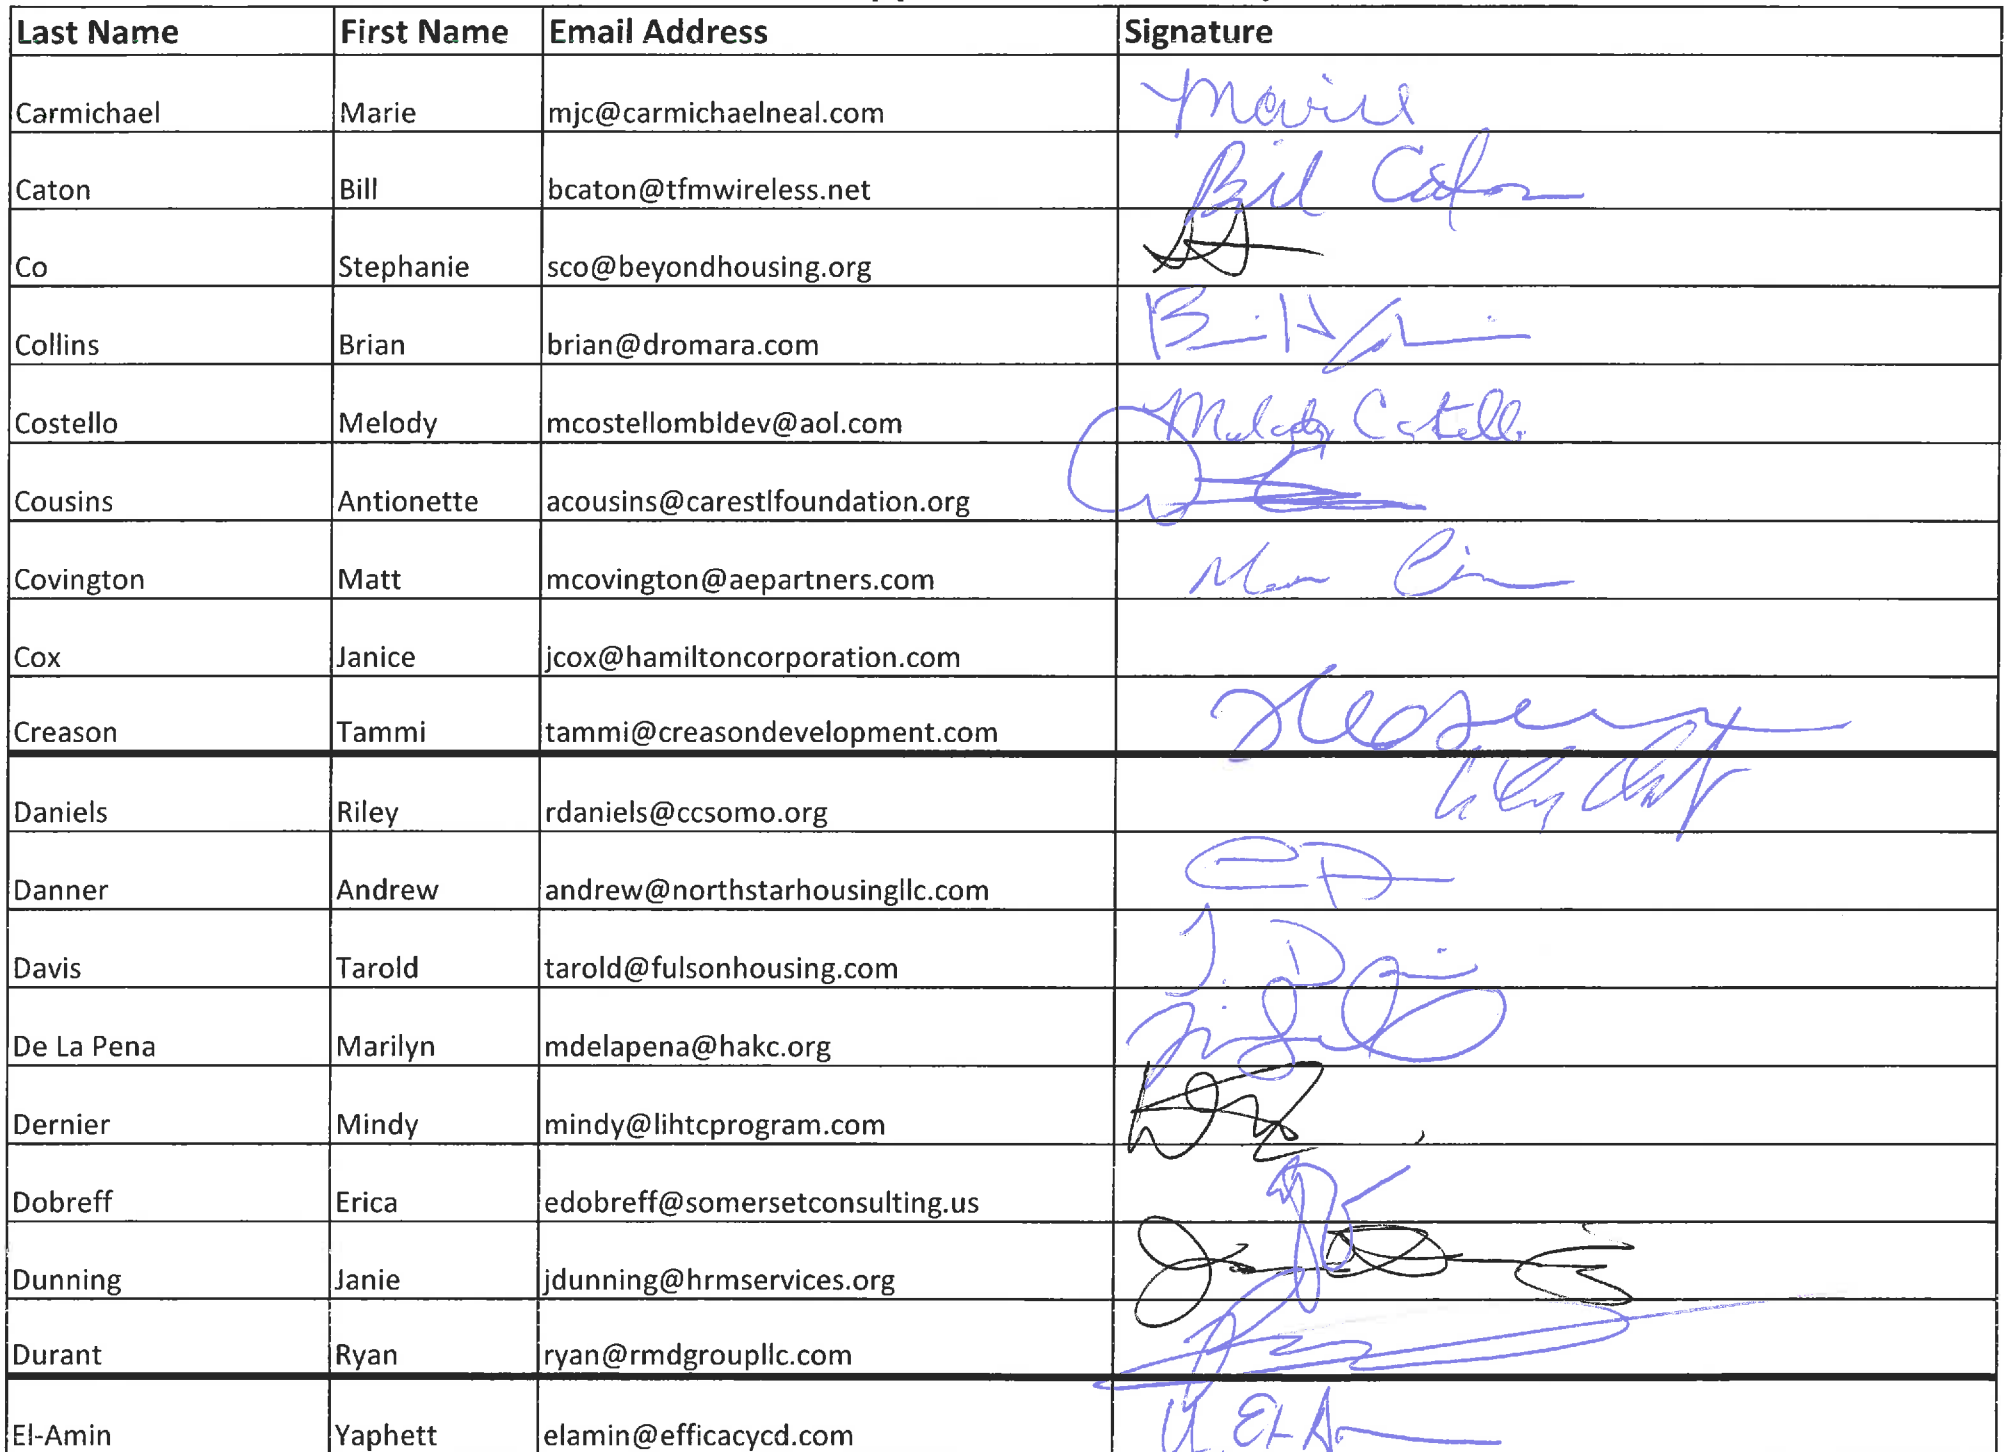 Last Name First Name Email Address Signature
Carmichael Marie mjc@carmichaelneal.com Marie
Caton Bill bcaton@tfmwireless.net Bill Caton
Co Stephanie sco@beyondhousing.org
Collins Brian brian@dromara.com
Costello Melody mcostellombldev@aol.com Melody Costello
Cousins Antionette acousins@carestlfoundation.org
Covington Matt mcovington@aepartners.com
Cox Janice jcox@hamiltoncorporation.com
Creason Tammi tammi@creasondevelopment.com
Daniels Riley rdaniels@ccsomo.org
Danner Andrew andrew@northstarhousingllc.com
Davis Tarold tarold@fulsonhousing.com T. Davis
De La Pena Marilyn mdelapena@hakc.org
Dernier Mindy mindy@lihtcprogram.com
Dobreff Erica edobreff@somersetconsulting.us
Dunning Janie jdunning@hrmservices.org
Durant Ryan ryan@rmdgroupllc.com
El-Amin Yaphett elamin@efficacycd.com